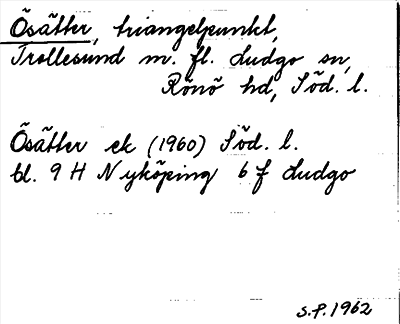 Ösätter, triangelpunkt,
Trollesund m. fl. Ludgo sn,
Rönö hd, Söd. l.
Ösätter ek (1960) Söd. l.
bl. 9 H Nyköping 6 f Ludgo
S.P. 1962